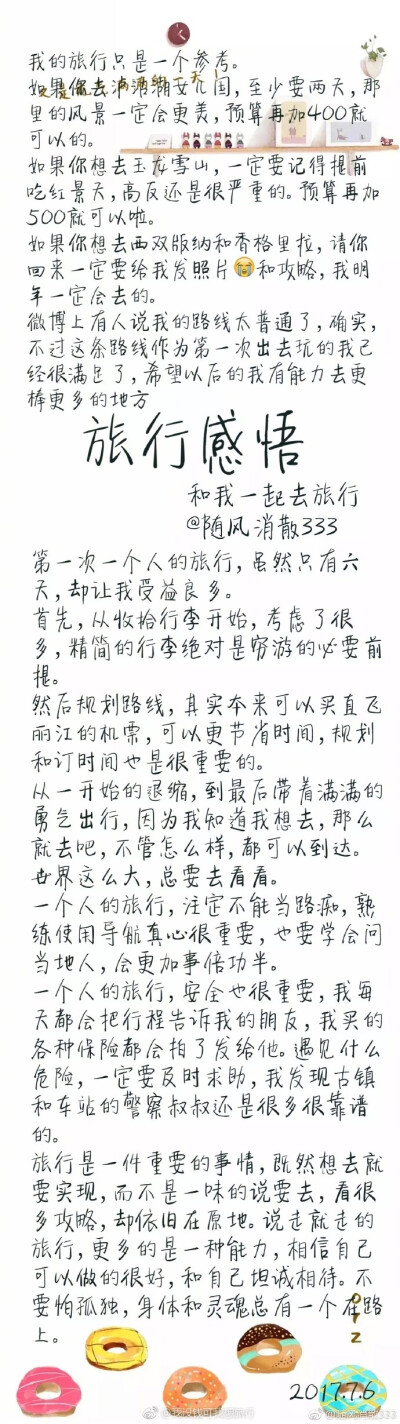 我的旅行只是一个参考。
如果你去泸沽湖女儿国，至少要两天，那
里的风景一定会更美，预算再加400就
可以的。
如果你想去玉龙雪山，一定要记得提前
吃红景天，高反还是很严重的。预算再加
500就可以啦。
如果你想去西双版纳和香格里拉，请你
回来一定要给我发照片😭和攻略，我明
年一定会去的。
微博上有人说我的路线太普通了，确实，
不过这条路线作为第一次出去玩的我已
经很满足了，希望以后的我有能力去更
棒更多的地方
旅行感悟
和我一起去旅行
@随风消散333
第一次一个人的旅行，虽然只有六
天，却让我受益良多。
首先，从收拾行李开始，考虑了很
多，精简的行李绝对是穷游的必要前
提。
然后规划路线，其实本来可以买直飞
丽江的机票，可以更节省时间，规划
和订时间也是很重要的。
从一开始的退缩，到最后带着满满的
勇气出行，因为我知道我想去，那么
就去吧，不管怎么样，都可以到达。
世界这么大，总要去看看。
一个人的旅行，注定不能当路痴，熟
练使用导航真心很重要，也要学会问
当地人，会更加事倍功半。
一个人的旅行，安全也很重要，我每
天都会把行程告诉我的朋友，我买的
各种保险都会拍了发给他。遇见什么
危险，一定要及时求助，我发现古镇
和车站的警察叔叔还是很多很靠谱
的。
旅行是一件重要的事情，既然想去就
要实现，而不是一味的说要去，看很
多攻略，却依旧在原地。说走就走的
旅行，更多的是一种能力，相信自己
可以做的很好，和自己坦诚相待。不
要怕孤独，身体和灵魂总有一个在路
上。
2017.7.6